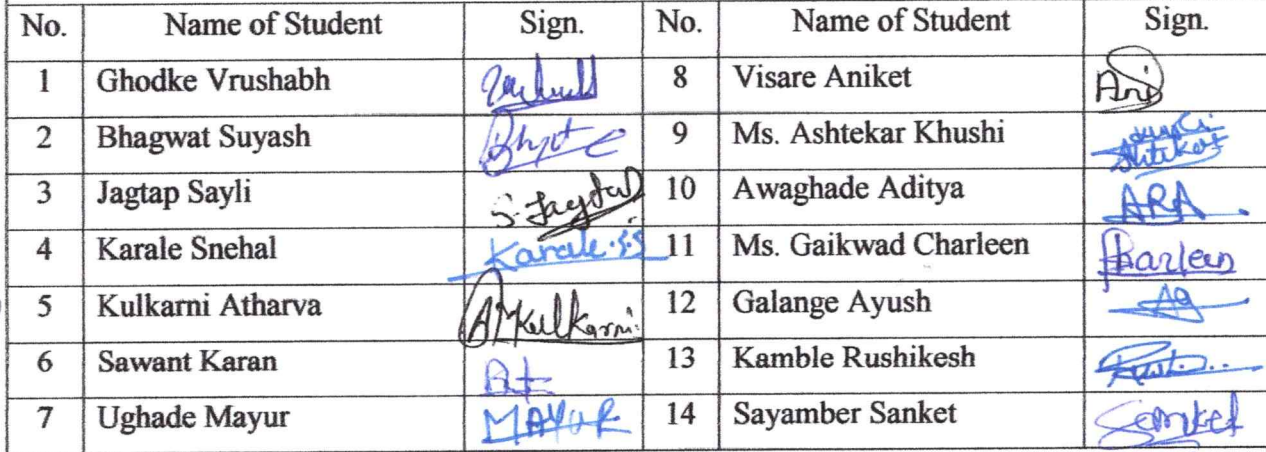 No. Name of Student Sign. No. Name of Student Sign.
1 Ghodke Vrushabh 8 Visare Aniket Ani
2 Bhagwat Suyash 9 Ms. Ashtekar Khushi
3 Jagtap Sayli S. Jagtap 10 Awaghade Aditya ARA
4 Karale Snehal Karale.S.S 11 Ms. Gaikwad Charleen Charleen
5 Kulkarni Atharva AMKulkarni. 12 Galange Ayush AG
6 Sawant Karan 13 Kamble Rushikesh
7 Ughade Mayur MAYUR 14 Sayamber Sanket Sanket